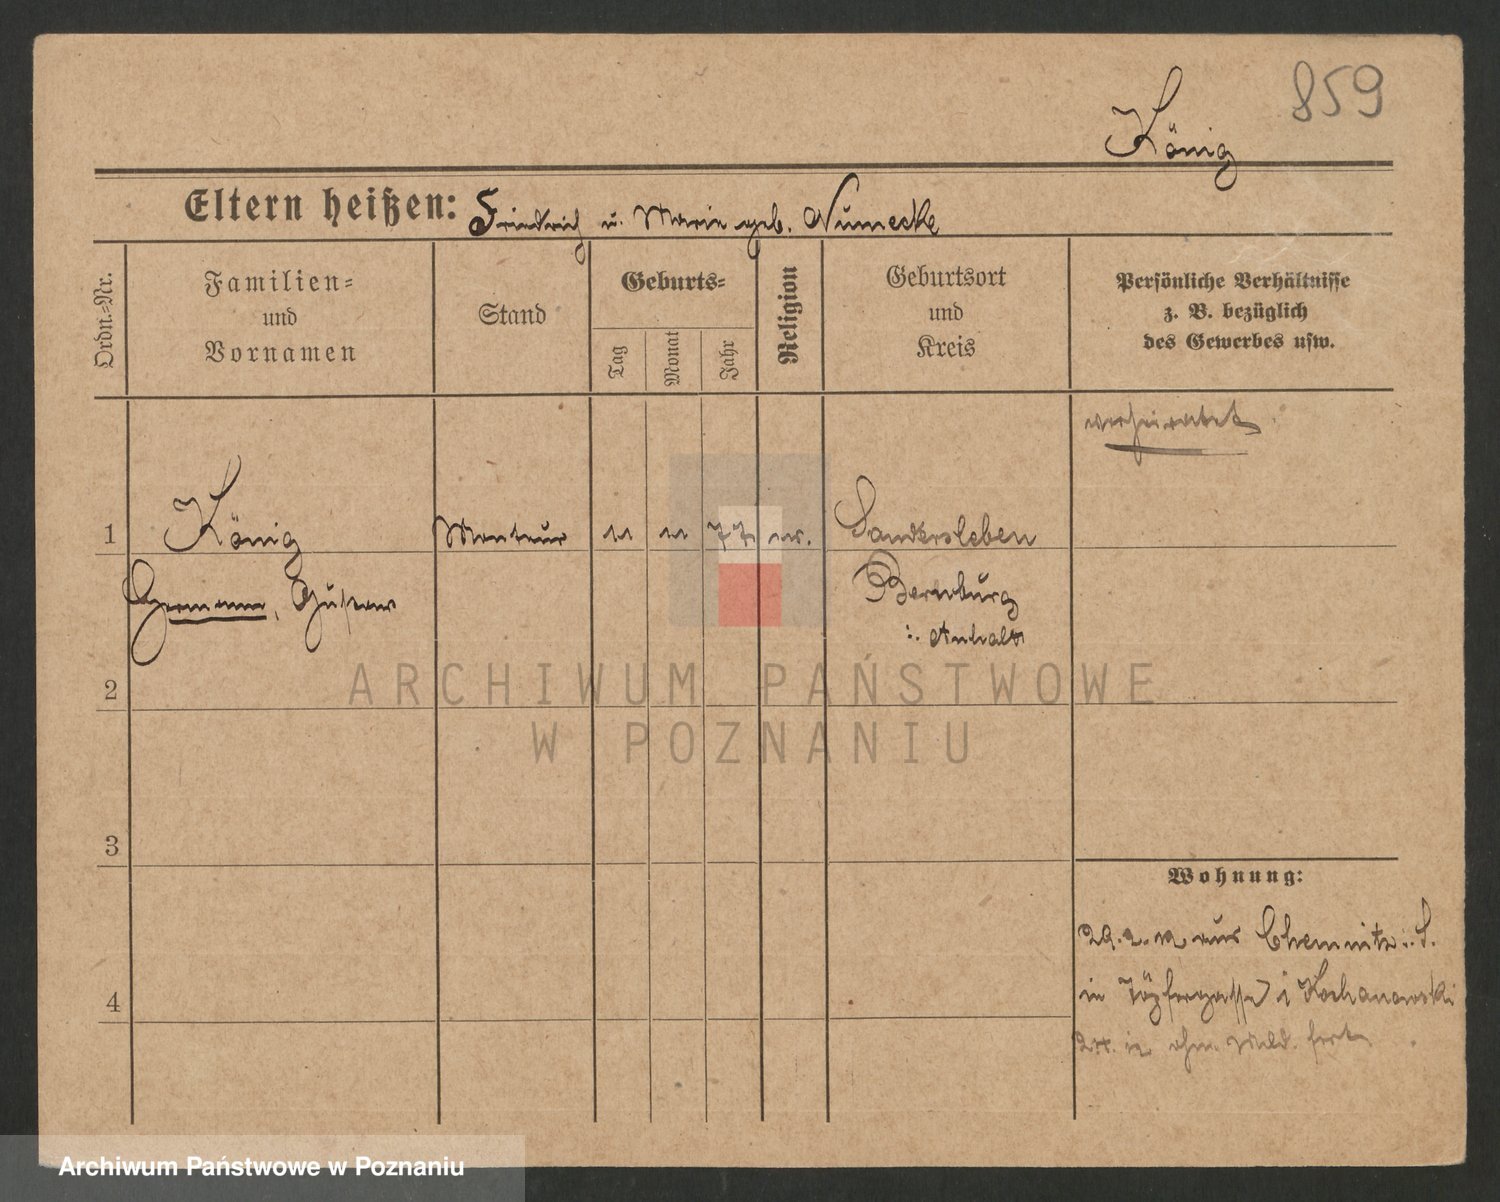 859
König
Eltern heißen: Friedrich u. Marie geb. Numecke
Ordn.=Nr.
Familien=
und
Vornamen
Stand
Geburts=
Tag
Monat
Jahr
Religion
Geburtsort
und
Kreis
Persönliche Verhältnisse
z. B. bezüglich
des Gewerbes usw.
verheiratet
1 König Monteur 11 11 77 ev. Sandersleben
Hermann, Gustav Bernburg
i. Anhalt
2
3
4
Wohnung:
29.2.12 aus Chemnitz i. S.
in Töpfergasse 7 i Kochanowski
12 ohne Meld. fort
ARCHIWUM PAŃSTWOWE
W POZNANIU
Archiwum Państwowe w Poznaniu